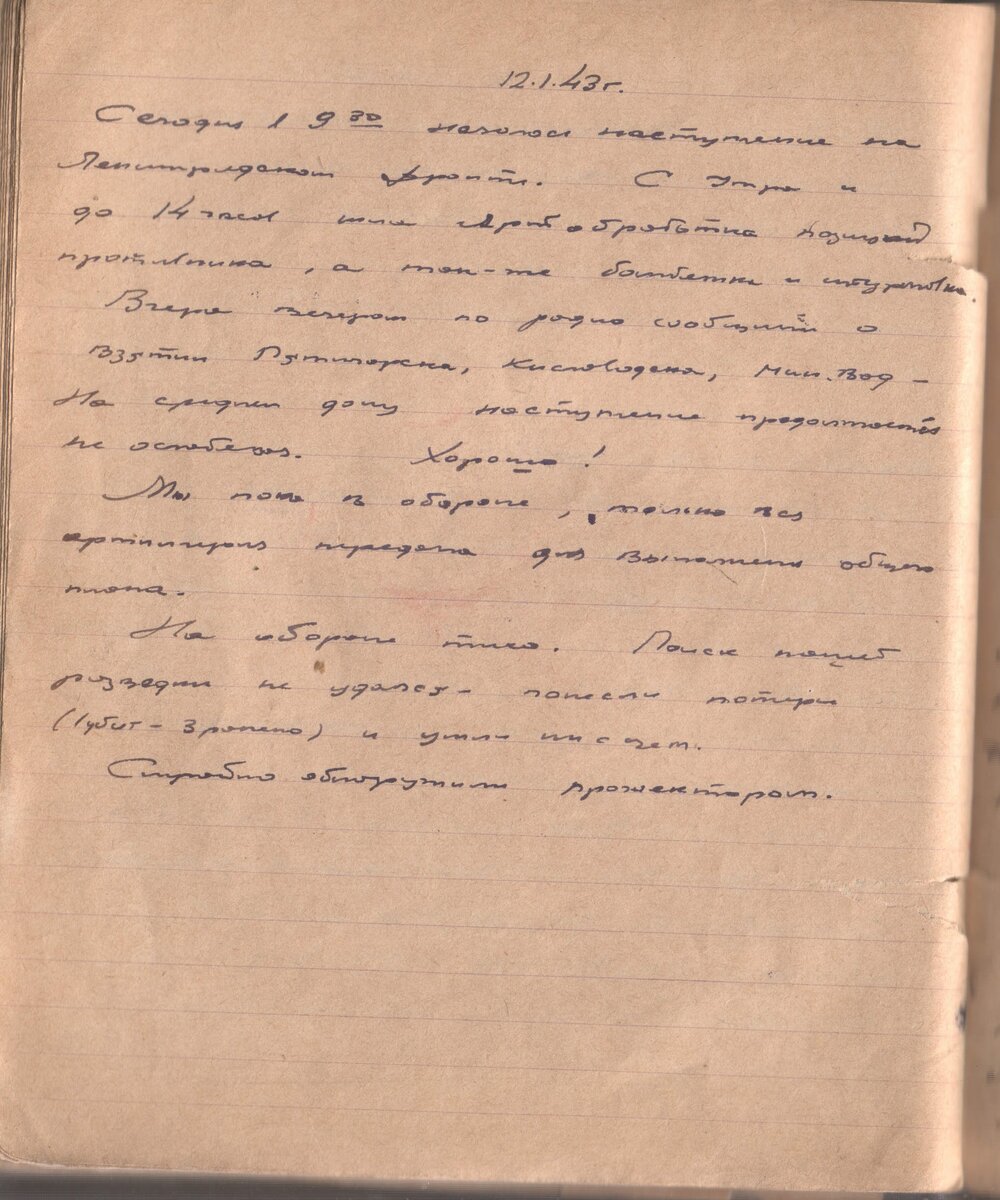 12.1.43г.
Сегодня в 9 30 началось наступление на
Ленинградском фронте. С утра и
до 14 часов шла артобработка позиций
противника, а так-же бомбежка и штурмовка.
Вчера вечером по радио сообщили о
взятии Пятигорска, Кисловодска, Мин. Вод –
На среднем дону наступление продолжается
не ослабевая. Хорошо!
Мы пока в обороне, только вся
артиллерия передана для выполнения общего
плана.
На обороне тихо. Поиск нашей
разведки не удался – понесли потери
(1 убит – 3 ранено) и ушли ни с чем.
обнаружили прожектором.